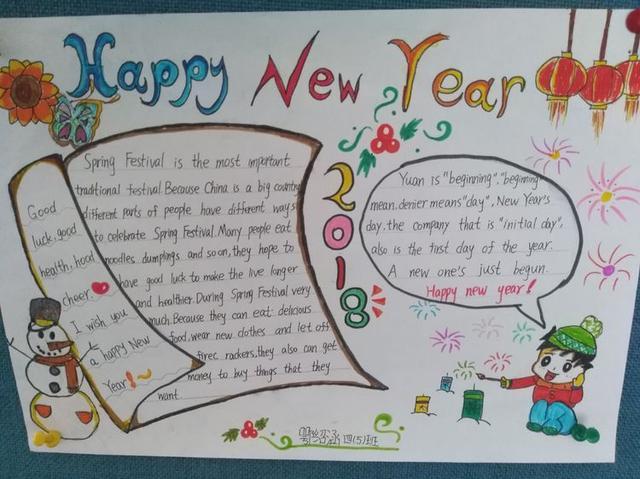 Happy New Year
Good
luck, good
health, hood
cheer.
I wish you
a happy New
Year!
Spring Festival is the most important
traditional festival. Because China is a big country
different parts of people have different ways
to celebrate Spring Festival. Many people eat
noodles. dumplings and so,on, they hope to
have good luck to make the live longer
and healthier. During Spring Festival very
much. Because they can eat delicious
food, wear new clothes and let off
firec rackers, they also can get
money to buy things that they
want
2018
Yuan is "beginning". "beginning"
mean. denier means "day". New Year's
day. the company that is "initial day",
also is the first day of the year.
A new one's just begun.
Happy new year!
四(5)班